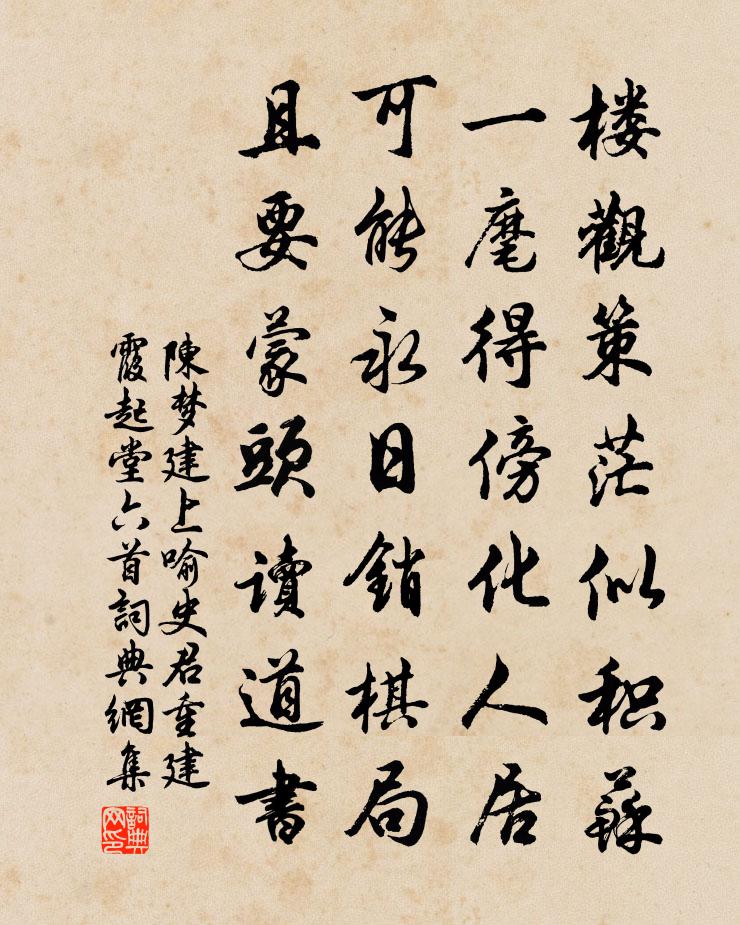 楼觀策茫似积蘇
一麾得傍化人居
可能永日銷棋局
且要蒙頭讀道書
陳梦建上喻史君重建
霞起堂六首詞典網集
詞典网印